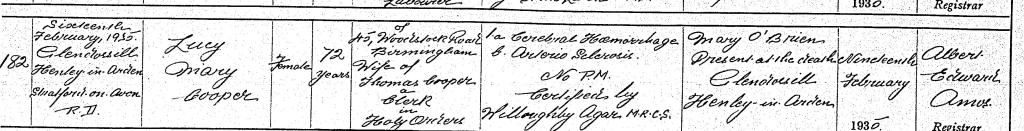 1930. Registrar
182
Sixteenth
February, 1930.
Henley in Arden
Stratford-on-Avon
R.D.
Lucy
Mary
Cooper
Female
72
years
of
45, Woodstock Road
Birmingham
Wife of
Thomas Cooper
a
Clerk
in
Holy Orders
1a Cerebral Hæmorrhage
b. Arterio Sclerosis.
No P.M.
Certified by
Willoughby Agar M.R.C.S.
Mary O'Brien
Present at the death
Henley-in-Arden
Nineteenth
February
1930.
Albert
Edward
Amos
Registrar